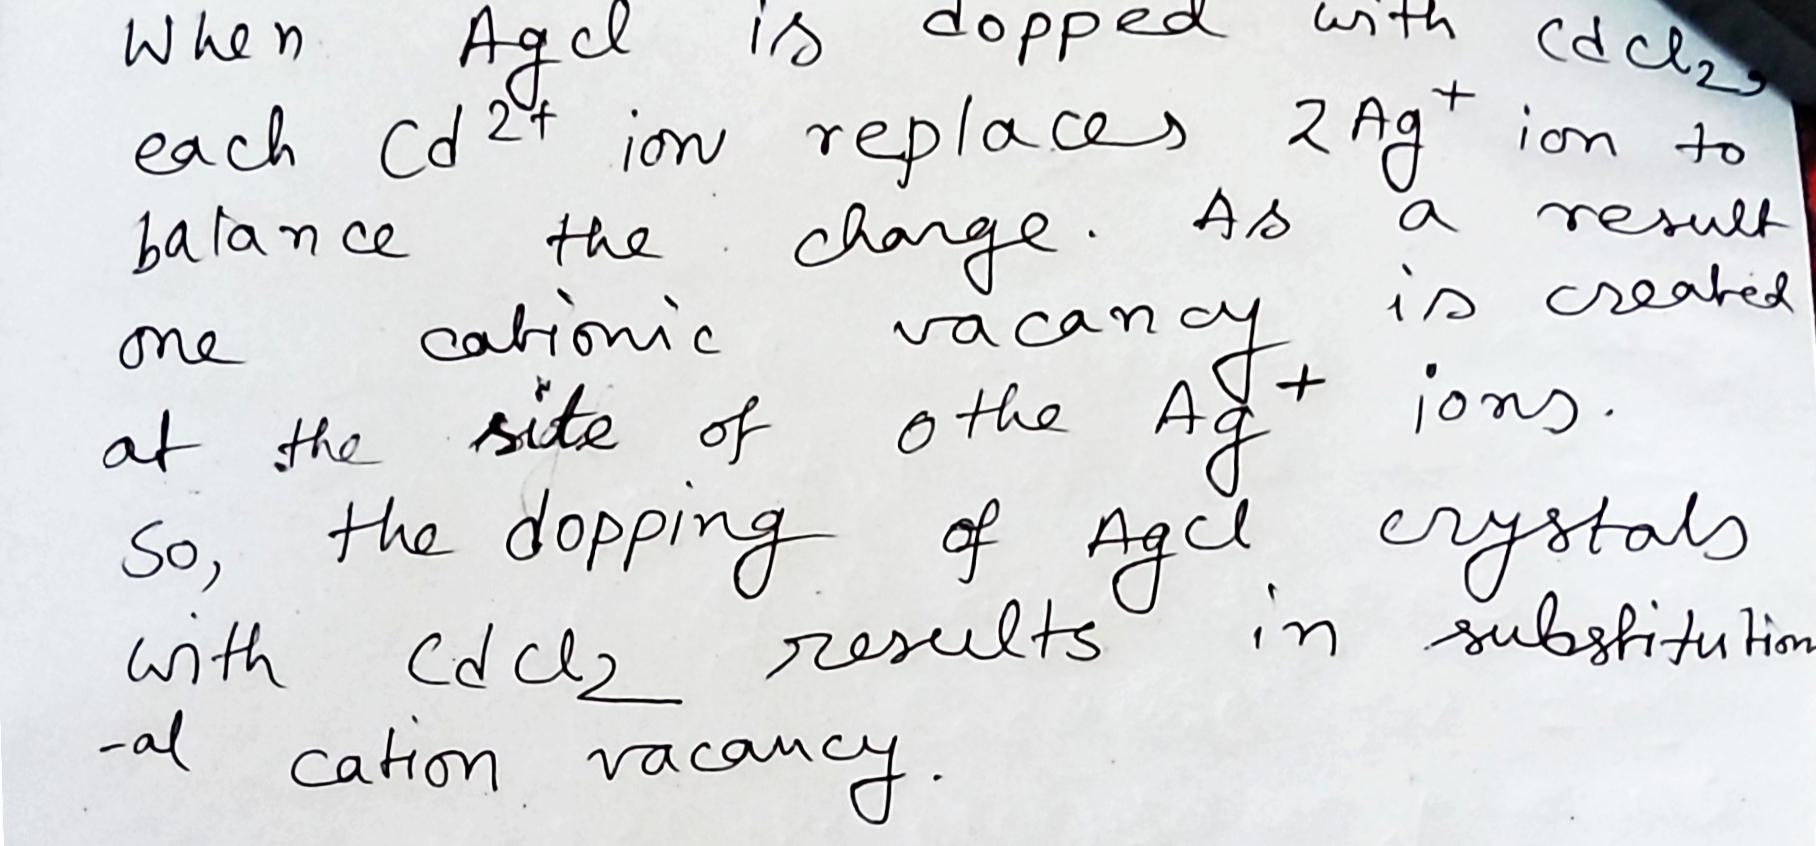 When Agcl is dopped with cdcl2,
each Cd2+ ion replaces 2Ag+ ion to
balance the change. As a result
one cationic vacancy is created
at the site of othe Ag+ ions.
So, the dopping of Agcl crystals
with cdcl2 results in substitution
-al cation vacancy.